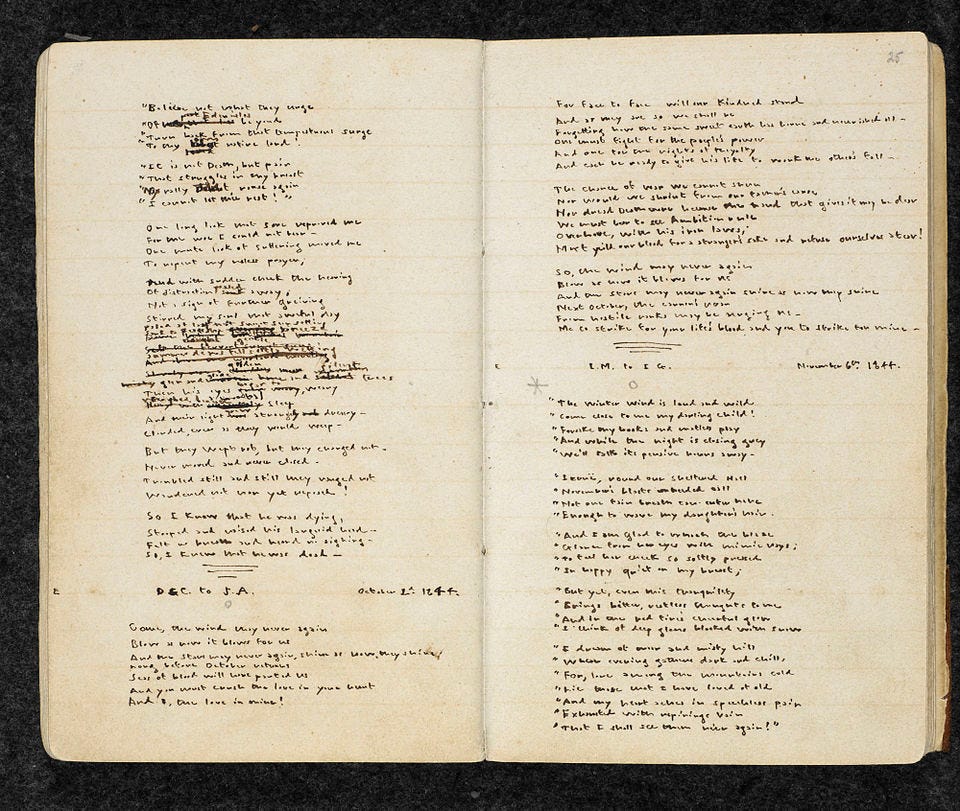 "Believe not what they urge
"Of past Edenisles beyond
"Turn back from that tempestuous surge
"To thy native land!
"It is not Death, but pain
"That struggles in thy breast
"Nay rally rouse again
"I cannot let thee rest!"
One long look that sore reproved me
For the woe I could not bear-
One mute look of suffering moved me
To repent my useless prayer;
And with sudden check the heaving
Of distraction passed away;
Not a sign of further grieving
Stirred my soul that awful day
Then his eyes weary
sleep
And their sight was strangely dreary-
Clouded, even as they would weep-
But they wept not, but they changed not-
Never moved and never closed-
Troubled still and still they ranged not
Wandered not nor yet reposed!
So I knew that he was dying,
Stooped and raised his languid head-
Felt no breath and heard no sighing-
So, I knew that he was dead-
E
D G C. to J. A.
October 2d. 1844.
Come, the wind may never again
Blow as now it blows for us
And the stars may never again, shine as now, they shine;
Long before October returns
Seas of blood will have parted us
And you must crush the love in your heart
And I, the love in mine!
25
For face to face will our Kindred stand
And as they are so we shall be
Forgetting how the same sweet earth has borne and nourished all-
One must fight for the people's power
And one for the rights of Royalty
And each be ready to give his life to work the other's fall-
The chance of war we cannot shun
Nor would we shrink from our fathers' cause
Nor dread Death more because the hand that gives it may be dear
We must bear to see Ambition rule
Over Love, with his iron laws;
Must yield our blood for a stranger's sake and refuse ourselves a tear!
So, the wind may never again
Blow as now it blows for us
And the stars may never again shine as now they shine
Next October, the cannon's roar
From hostile ranks may be urging us-
Me to strike for your life's blood and you to strike for mine-
E
I. M. to I. G.
November 6th 1844.
"The winter wind is loud and wild
"Come close to me my darling child!
"Forsake thy books and mateless play
"And while the night is closing grey
"We'll talk its pensive hours away-
"Iernë, round our sheltered Hall
"November's blasts unheeded call
"Not one faint breath can enter here
"Enough to wave my daughter's hair.
"And I am glad to watch the blaze
"Glance from her eyes with mimic rays;
"To feel her cheek so softly pressed
"In happy quiet on my breast;
"But yet, even this tranquillity
"Brings bitter, restless thoughts to me
"And in the red fire's cheerful glow
"I think of deep glens blocked with snow
"I dream of moor and misty hill
"Where evening gathers dark and chill,
"For, lone among the mountains cold
"Lie those that I have loved of old
"And my heart aches in speechless pain
"Exhausted with repinings vain
"That I shall see them ne'er again!"